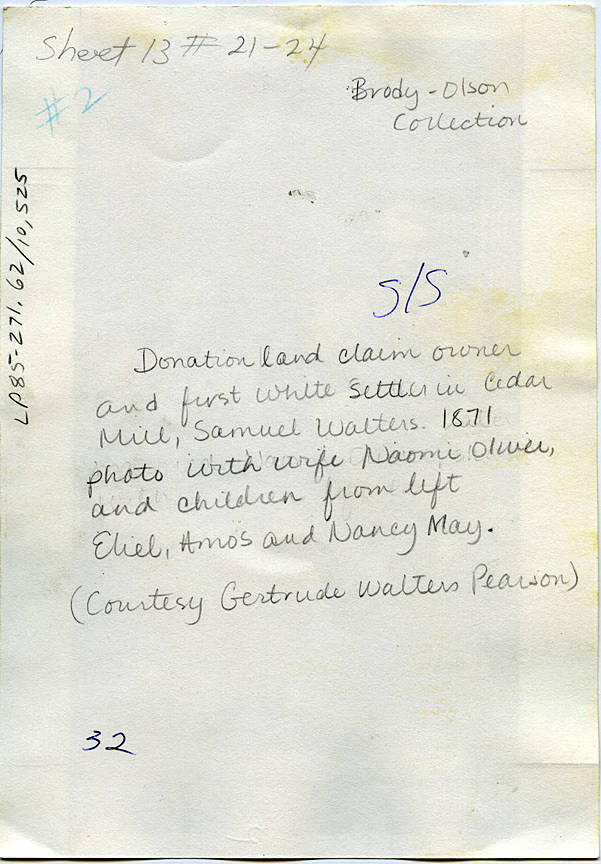 Sheet 13 # 21-24
#2
Brody-Olson
Collection
LP85-271.62/10,525
S/S
Donation land claim owner
and first white settler in Cedar
Mill, Samuel Walters. 1871
photo with wife Naomi Oliver,
and children from left
Eliel, Amos and Nancy May.
(Courtesy Gertrude Walters Pearson)
32